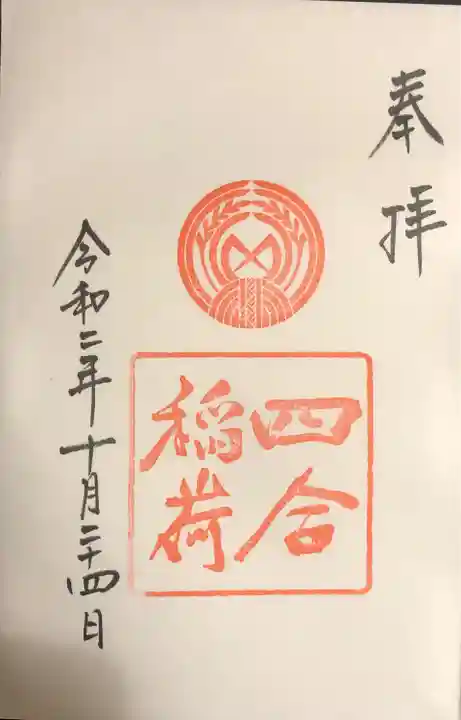 奉拝
四合
稲荷
令和二年十月二十四日